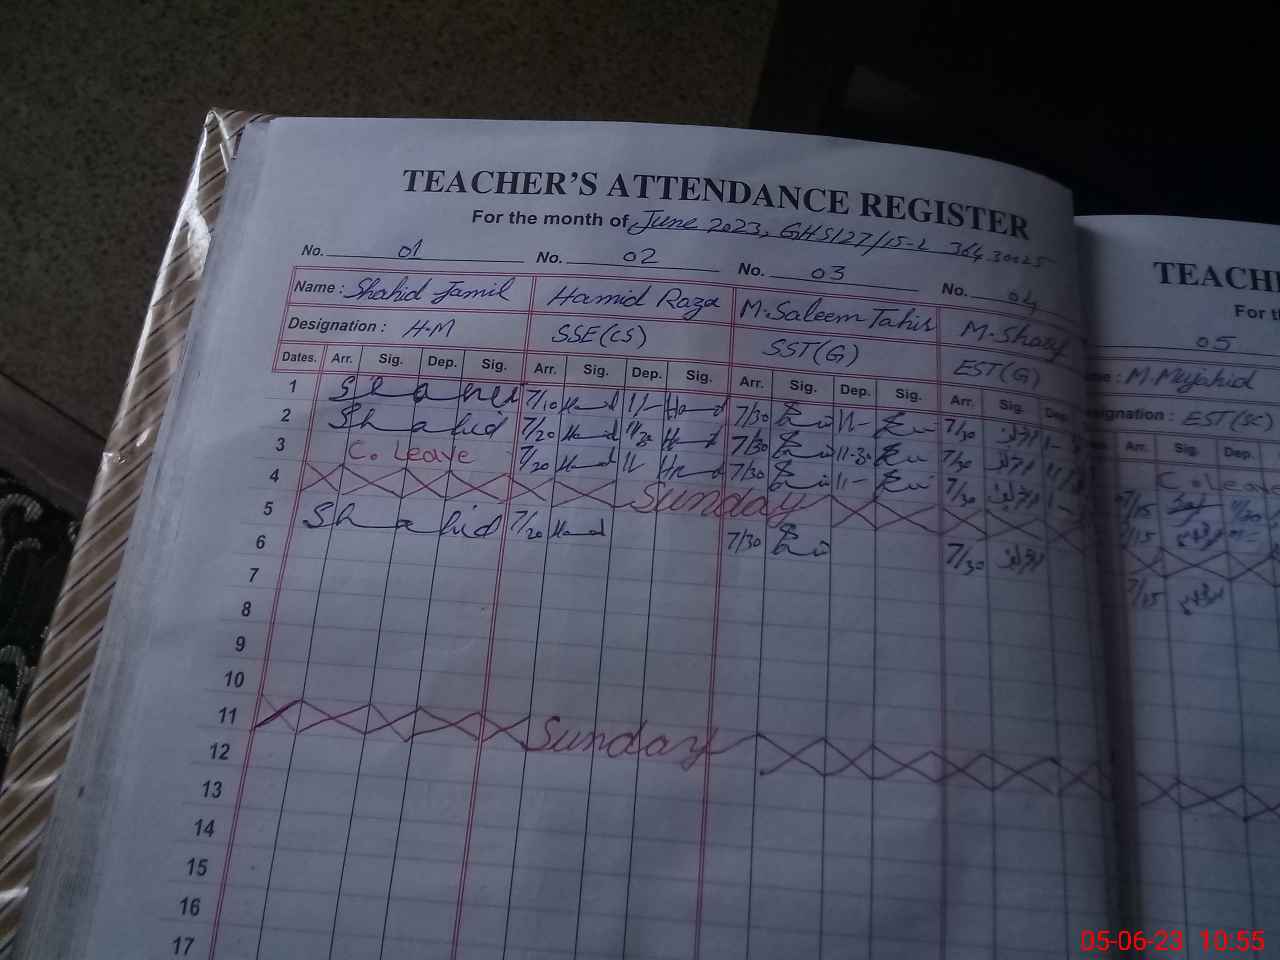 TEACHER'S ATTENDANCE REGISTER
For the month of June 2023, GHS127/15-L 364.30025
No. 01 No. 02 No. 03 No. 04
Name : Shahid Jamil Hamid Raza M. Saleem Tahir M. Sharif
Designation : H-M SSE(CS) SST(G) EST(G)
Dates. Arr. Sig. Dep. Sig. Arr. Sig. Dep. Sig. Arr. Sig. Dep. Sig. Arr. Sig. De
1 Shahid 7/10 Hamd 11- Hamd 7/30 11- 7/30
2 Shahid 7/20 Hamd 11/30 Hamd 7/30 11-30 7/30
3 C. Leave 7/20 Hamd 11 Hamd 7/30 11- 7/30
4 Sunday
5 Shahid 7/20 Hamd 7/30 7/30
6
7
8
9
10
11 Sunday
12
13
14
15
16
17
TEACHE
For th
05
me : M. Mujahid
esignation : EST(SC)
Arr. Sig. Dep.
C. Leave
7/15 11/30
7/15
7/15
05-06-23 10:55